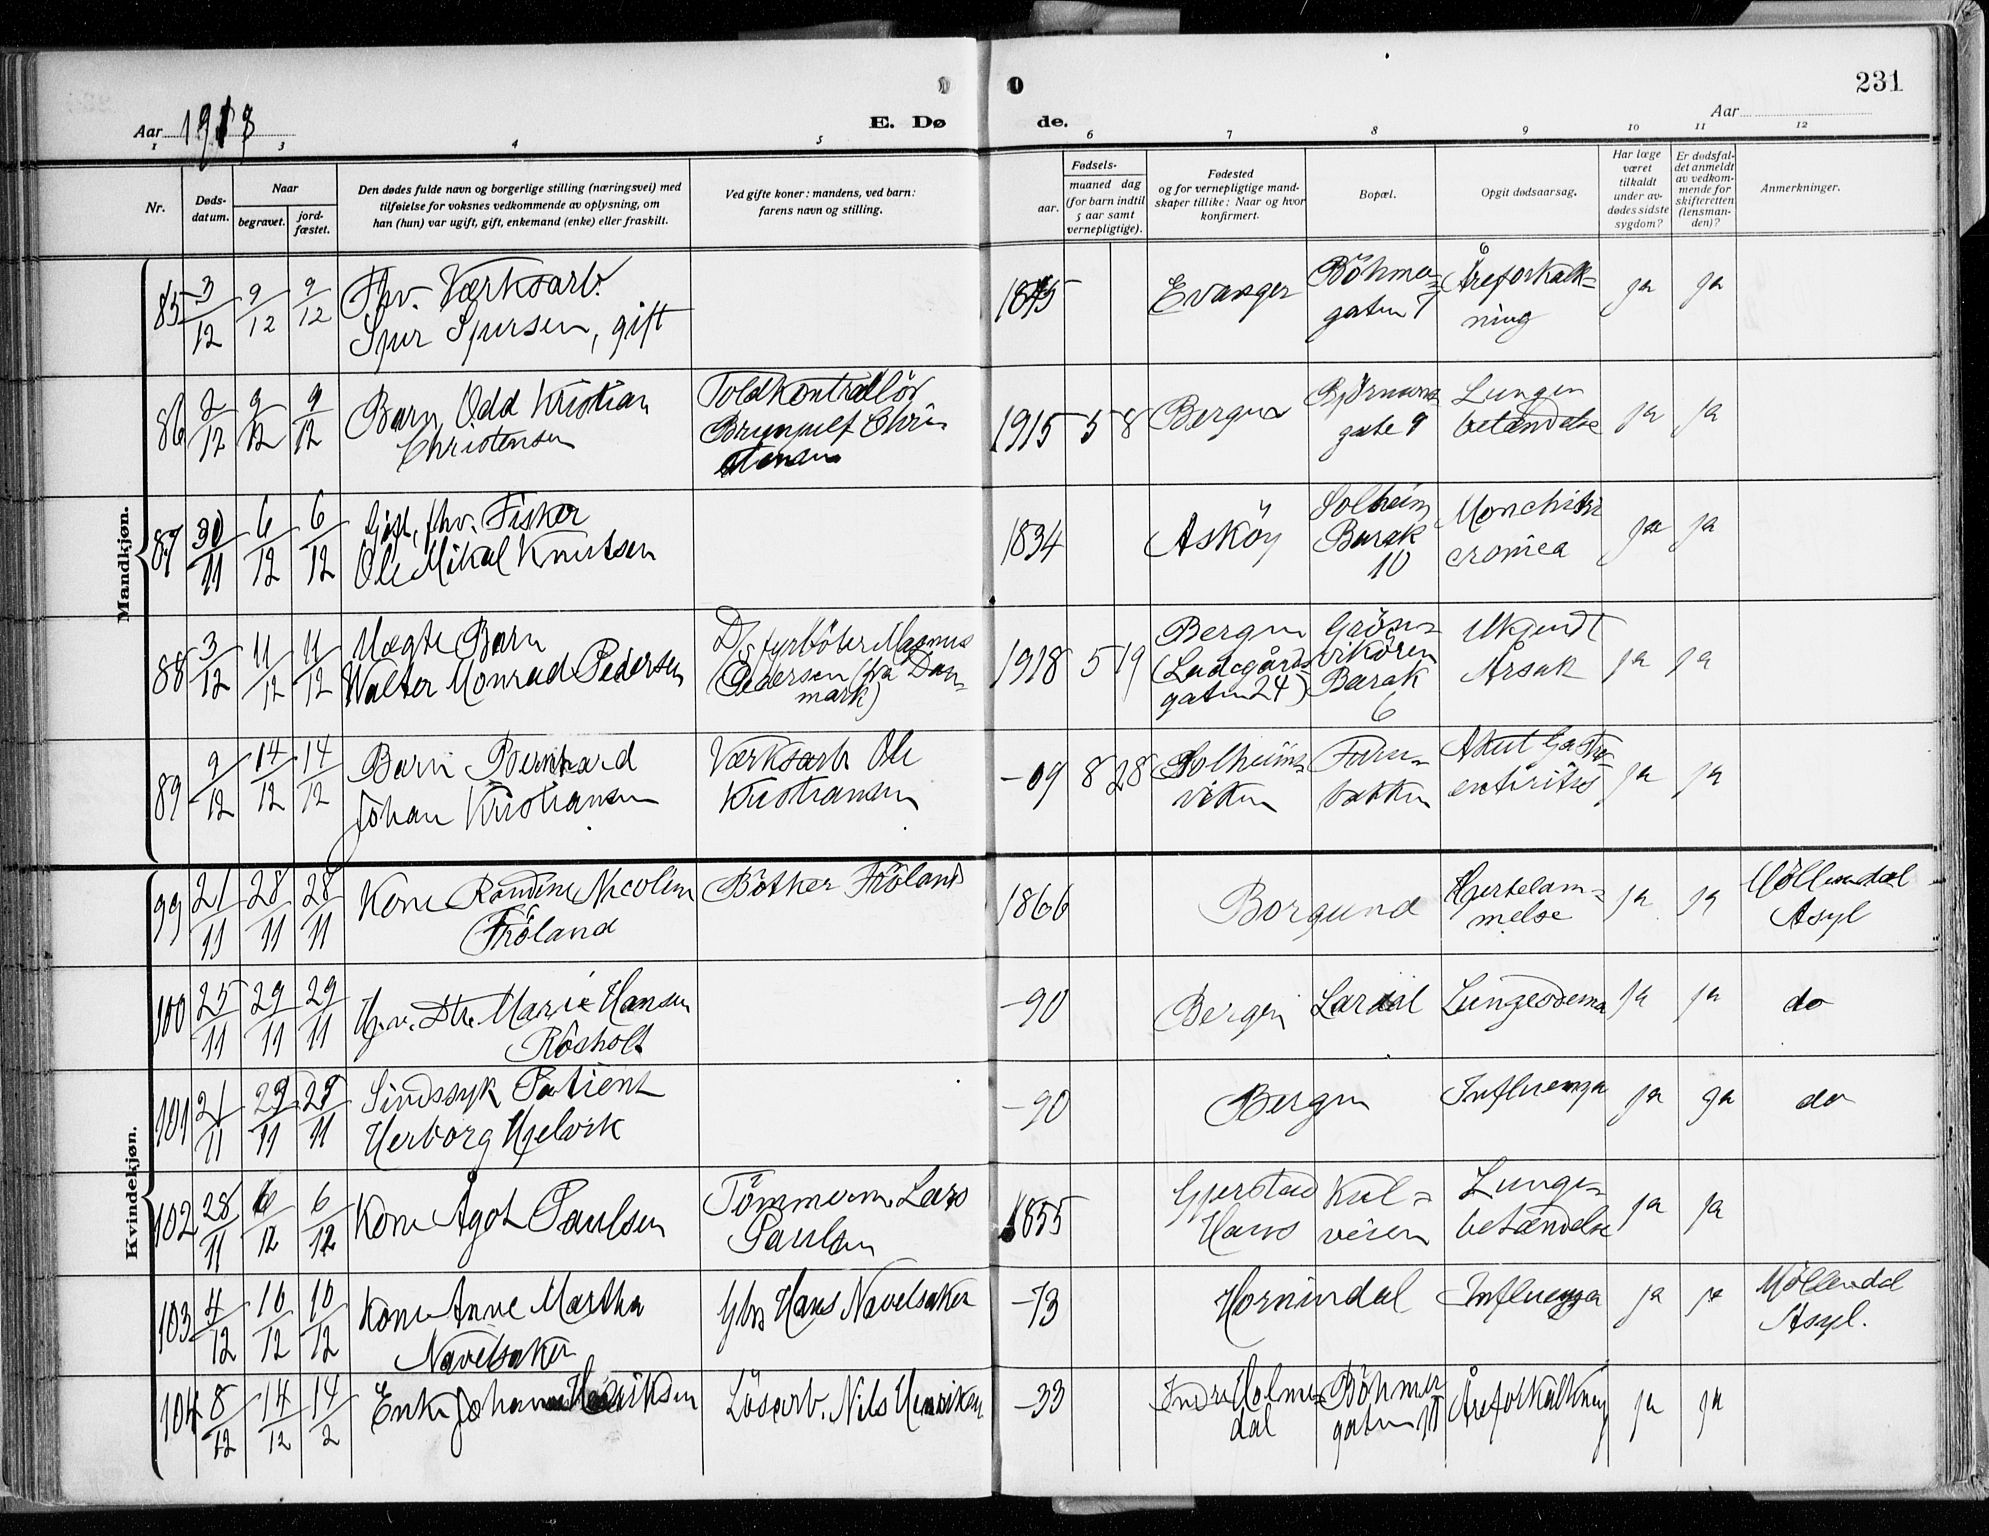 231
Aar 1918
E. Dø de.
Aar
1 3 4 5 6 7 8 9 10 11 12
Nr.
Døds-
datum.
Naar
begravet.
jord-
fæstet.
Den dødes fulde navn og borgerlige stilling (næringsvei) med
tilføielse for voksnes vedkommende av oplysning, om
han (hun) var ugift, gift, enkemand (enke) eller fraskilt.
Ved gifte koner: mandens, ved barn:
farens navn og stilling.
Fødsels-
aar.
maaned dag
(for barn indtil
5 aar samt
vernepligtige).
Fødested
og for vernepligtige mand-
skaper tillike: Naar og hvor
konfirmert.
Bopæl.
Opgit dødsaarsag.
Har læge
været
tilkaldt
under av-
dødes sidste
sygdom?
Er dødsfal-
det anmeldt
av vedkom-
mende for
skifteretten
(lensman-
den)?
Anmerkninger.
Mandkjøn.
85 3/12 9/12 9/12
Fhv. Værksarb.
Sjur Sjursen, gift
1845
Evanger
Böhmer-
gaten 7
6
Åreforkalk-
ning
ja ja
86 2/12 9/12 9/12
Barn Odd Kristian
Christensen
Toldkontrollör
Brynjulf Chri
stensen
1915 5 8
Bergen
gate 9
Lungen
betændelse
ja ja
87 30/11 6/12 6/12
Gift, fhv. Fisker
Ole Mikal Knutsen
1834
Asköy
Solheim
Barak
10
cronica
ja ja
88 3/12 11/12 11/12
Uægte Barn
Walter Monrad Pedersen
D/s fyrböter Magnus
Pedersen (fra Dan-
mark)
1918 5 19
Bergen
(Ladegårds
gaten 24)
Grönne-
vikören
Barak
6
Ukjendt
Årsak
ja ja
89 9/12 14/12 14/12
Barn Bernhard
Johan Kristiansen
Værksarb Ole
Kristiansen
-09 8 28
Solheims-
viken
Furu-
bakken
Akut Gastro-
entiritis
ja ja
Kvindekjøn.
99 21/11 28/11 28/11
Kone Randine Nicoline
Fröland
Bötker Fröland
1866
Borgund
Hjertelam-
melse
ja ja
Möllendal
Asyl
100 25/11 29/11 29/11
Hv. Dtr. Marie Hansen
Rösholt
-90
Bergen
Lardal
Lungeödema
ja ja
do
101 21/11 29/11 29/11
Sindssyk Patient
Herborg Hjelvik
-90
Bergen
Influenza
ja ja
do
102 28/11 6/12 6/12
Kone Ågot Paulsen
Tömmerm. Lars
Paulsen
1855
Gjerstad
Haus
veien
Lunge-
betændelse
ja ja
103 4/12 10/12 10/12
Kone Anne Martha
Navelsaker
Gbr Hans Navelsaker
-73
Hornindal
Influenza
ja ja
Möllendal
Asyl.
104 8/12 14/12 14/2
Enke Johanne Henriksen
Lösarb. Nils Henriksen
-33
Indre Holme-
dal
Böhmer
gaten
Åreforkalkning
ja ja